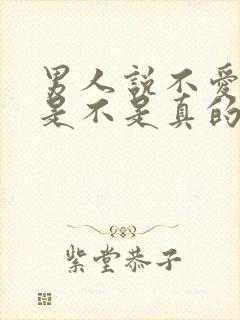 男人説不愛
是不是真的
紫堂恭子